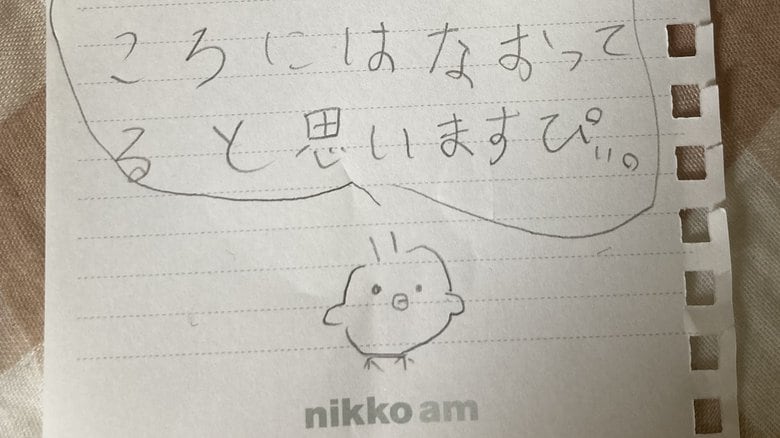 ころにはなおって
ると思いますぴ…。
nikko am